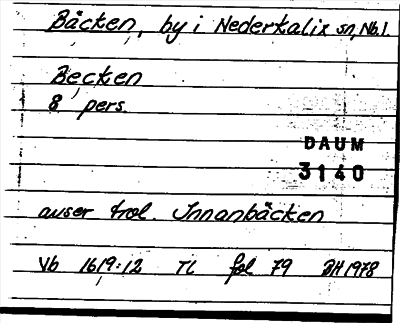 Bäcken, by i Nederkalix sn, Nb.l.
Becken
8 pers.
DAUM
3140
avser trol. Innanbäcken
Vb 1619:12 TL fol 79 BH 1978